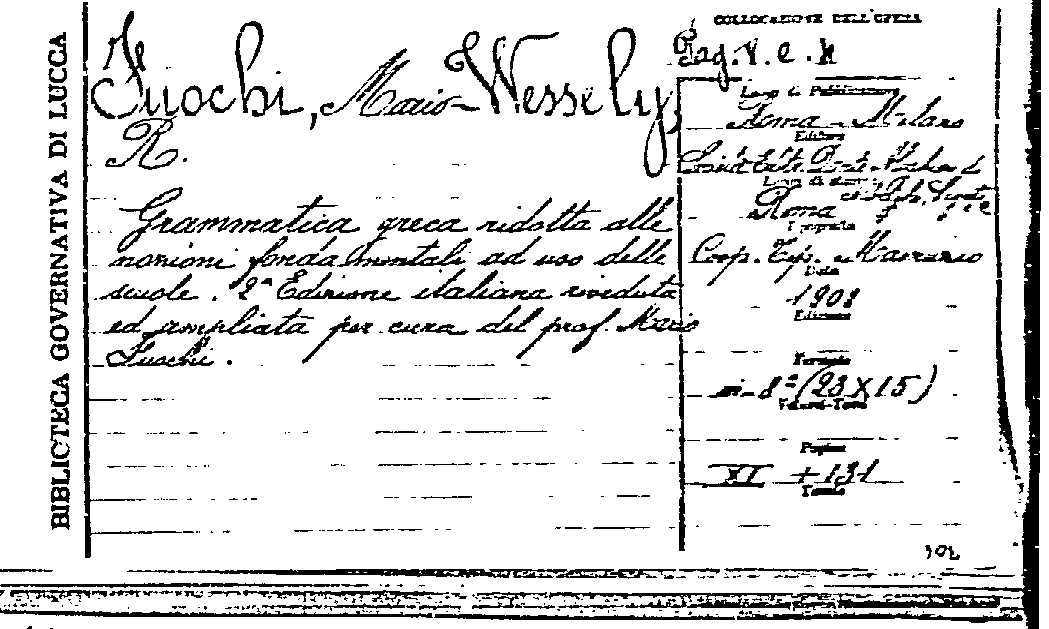 BIBLIOTECA GOVERNATIVA DI LUCCA
Fuochi, Mario - Wessely,
R.
Grammatica greca ridotta alle
nozioni fondamentali ad uso delle
scuole. 2ª Edizione italiana riveduta
ed ampliata per cura del prof. Mario
Fuochi.
COLLOCAZIONE DELL'OPERA
Luogo di Pubblicazione
Roma - Milano
Editore
Società Edit. Dante
Luogo di stampa
Roma
Tipografia
Coop. Tip. Manuzio
Data
1908
Edizione
Formato
in-8º (23 X 15)
Volume-Tomo
Pagine
XI + 131
Tavole